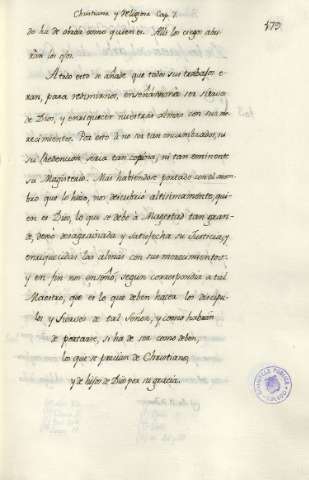 Christiana y Religiosa Cap. 7.
179.
do ha de obrar como quien es. Mas los ciegos abu-
ran los ojos.
A todo esto se añade que todos sus trabajos e-
ran, para redimirnos, enseñarnos a ser siervos
de Dios, y enriquecer nuestras almas con sus me-
recimientos. Por esto a no ser tan encumbrados, ni
su Redencion seria tan copiosa, ni tan eminente
su Magisterio. Mas habiendose portado con el asom-
bro que lo hizo, nos descubrió altisimamente, qui-
en es Dios, lo que se debe à Magestad tan gran-
de, dexó desagraviada y satisfecha su Justicia, y
enriquecidas las almas con sus merecimientos:
y en fin nos enseñó, segun correspondia a tal
Maestro, que es lo que deben hacer los discipu-
los y siervos de tal Señor, y como habran
de portarse, si ha de ser como deben,
lo que se precian de Christianos,
y de hijos de Dios por su gracia.
BIBLIOTECA PUBLICA
TOLEDO